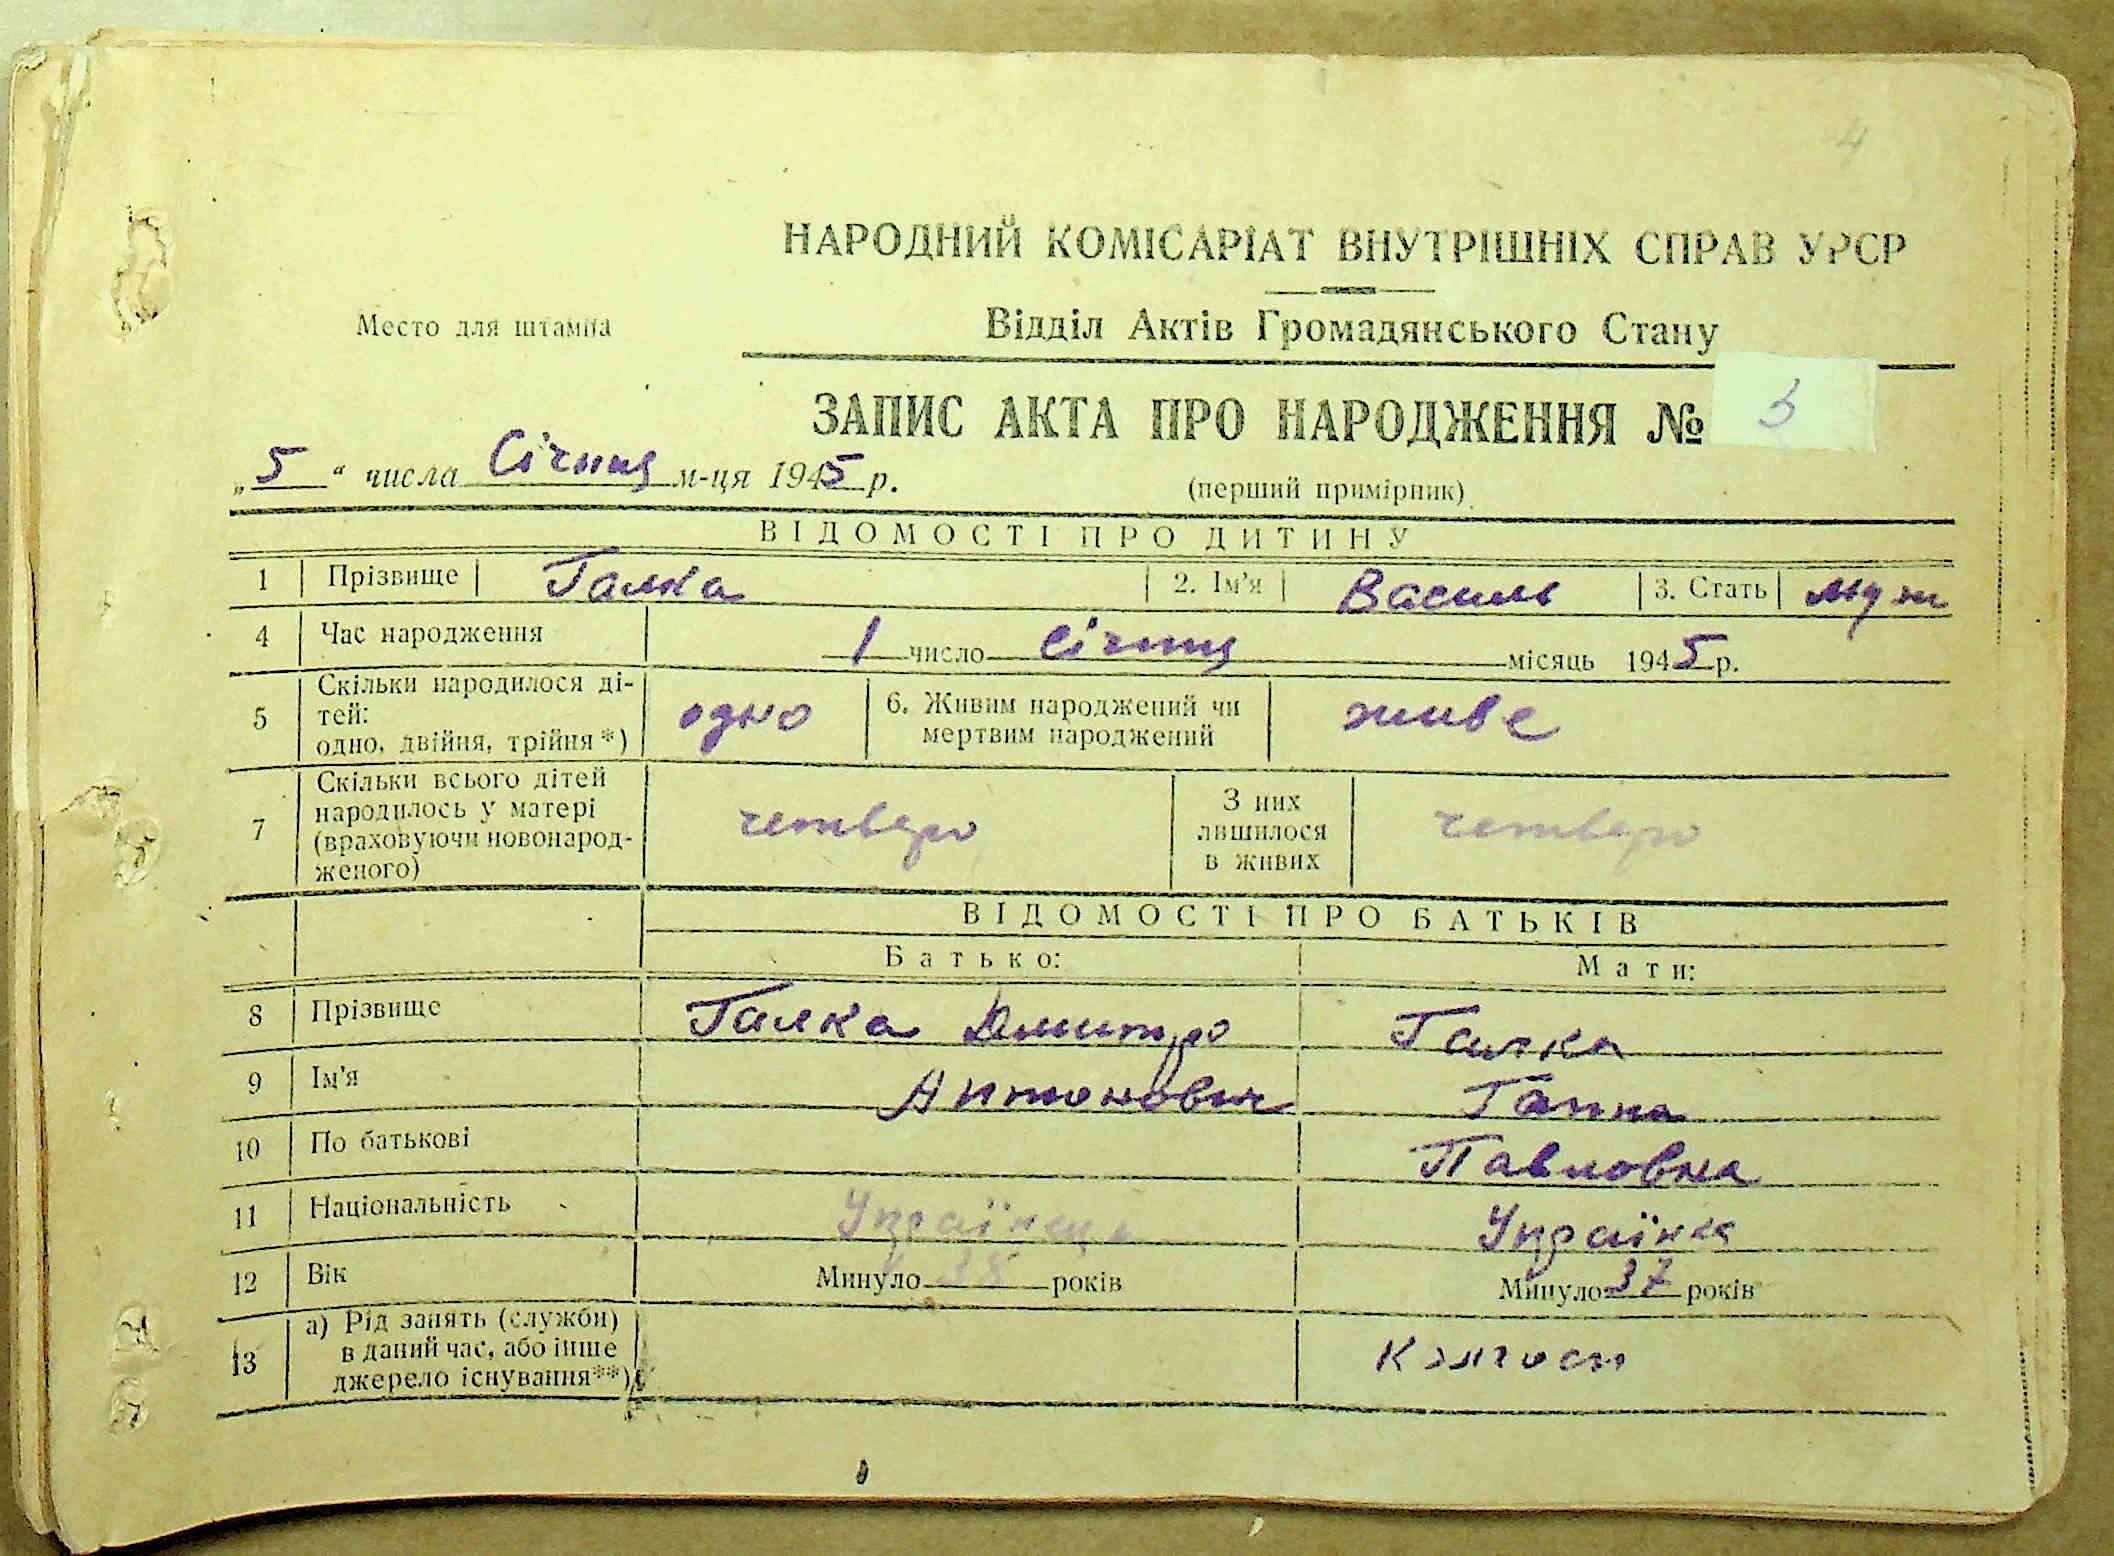 4
НАРОДНИЙ КОМІСАРІАТ ВНУТРІШНІХ СПРАВ УРСР
Место для штампа
Відділ Актів Громадянського Стану
ЗАПИС АКТА ПРО НАРОДЖЕННЯ № 3
„5“ числа Січня м-ця 1945 р.
(перший примірник)
ВІДОМОСТІ ПРО ДИТИНУ
1 Прізвище Галка 2. Ім'я Василь 3. Стать муж
4 Час народження 1 число Січня місяць 1945 р.
5 Скільки народилося ді-
тей:
одно, двійня, трійня *) одно 6. Живим народжений чи
мертвим народжений живе
7 Скільки всього дітей
народилось у матері
(враховуючи новонарод-
женого) четверо З них
лишилося
в живих четверо
ВІДОМОСТІ ПРО БАТЬКІВ
Батько: Мати:
8 Прізвище Галка Дмитро Галка
9 Ім'я Антонович Ганна
10 По батькові Павловна
11 Національність Українець Українка
12 Вік Минуло 38 років Минуло 37 років
13 а) Рід занять (служби)
в даний час, або інше
джерело існування**) Колгосп